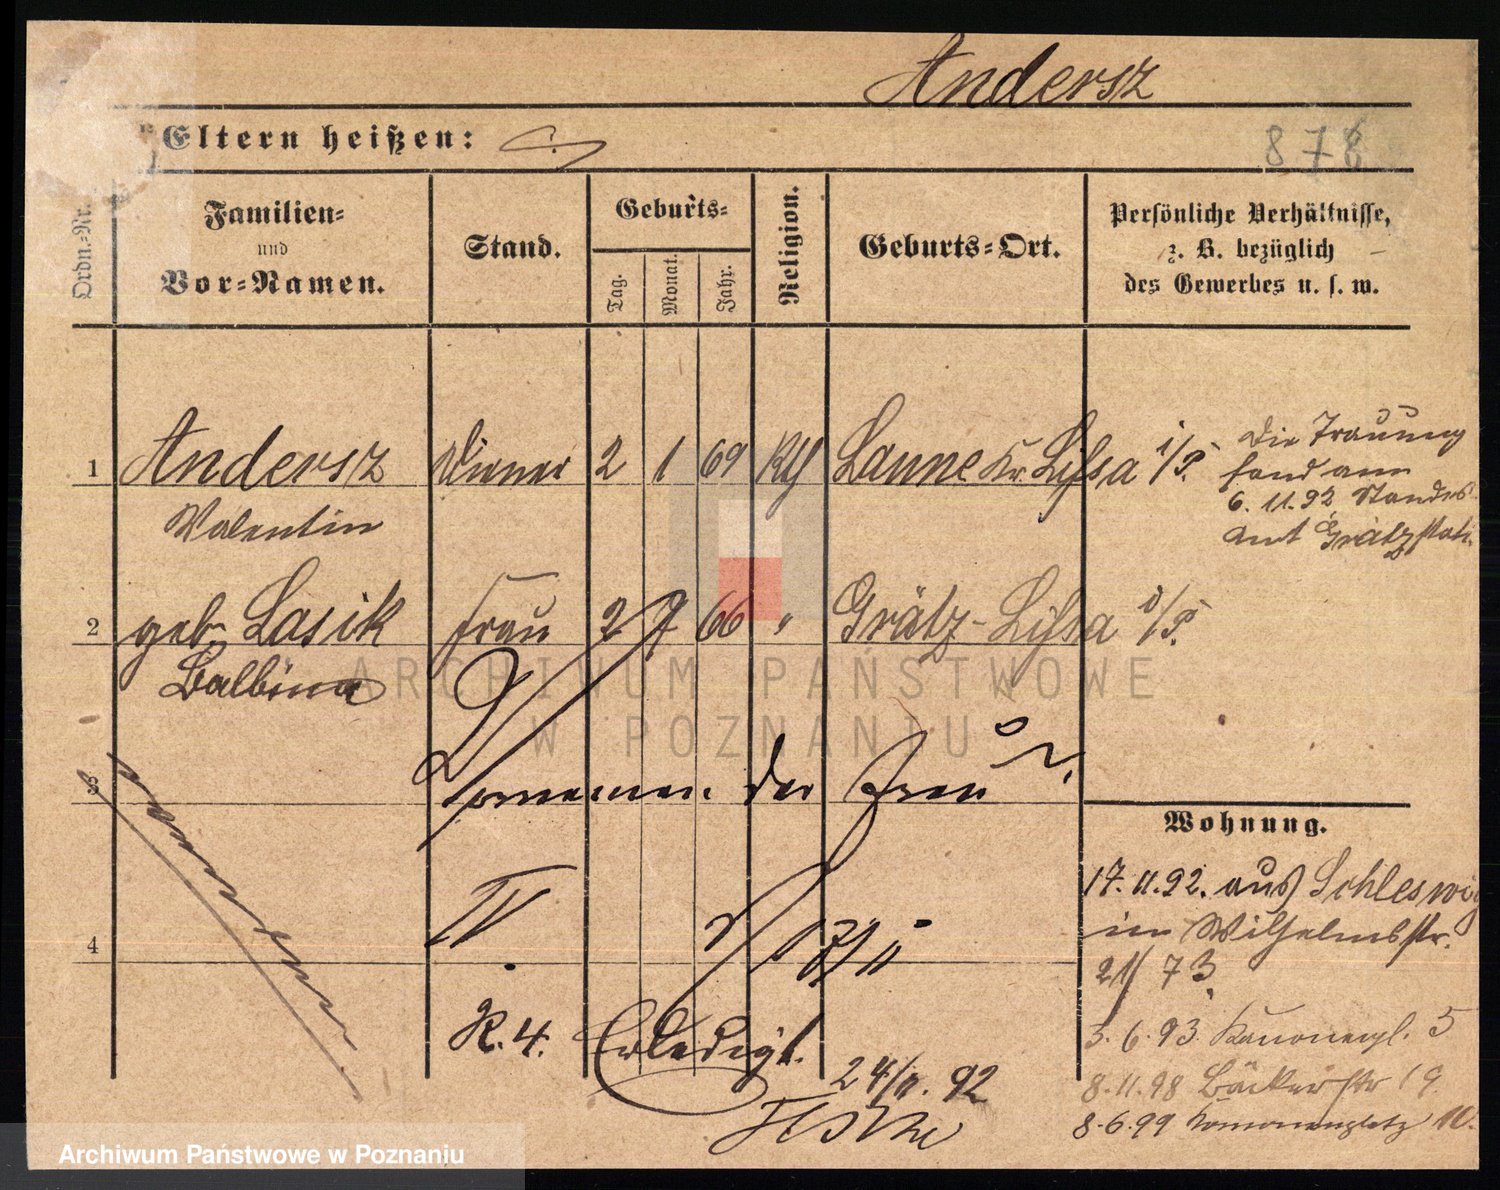 Andersz
Eltern heißen:
878
Ordn.-Nr.
Familien-
und
Vor-Namen.
Stand.
Geburts-
Tag.
Monat.
Jahr.
Religion.
Geburts-Ort.
Persönliche Verhältnisse,
z. B. bezüglich
des Gewerbes u. s. w.
1 Andersz Diener 2 1 69 Kth Lanne Kr. Lissa i/P.
Valentin
Die Trauung
fand am
6.11.92 Standes
amt Grätz statt.
2 geb Lasik Frau 2 7 66 " Grätz-Lissa i/P.
Balbina
ARCHIWUM PAŃSTWOWE
W POZNANIU
3
Vornamen der Frau
Wohnung.
17.11.92. aus Schleswig
in Wilhelmsstr.
21/73.
4
IV 17/11
K. 4. Erledigt.
24/11.92
3.6.93 Kanonenpl. 5
8.11.98 Bäckerstr 19
8.6.99 Kanonenplatz 10.
Archiwum Państwowe w Poznaniu